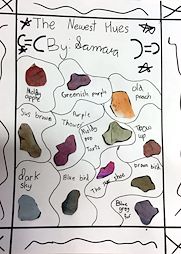 The Newest Hues
By: Samara
Moldy
apple
Greenish purple
old
peach
Sus brown
Purple
Thower
Throw
up
Tarts
Drown bird
dark
sky
Blue bird
The shoe
Blue
grey